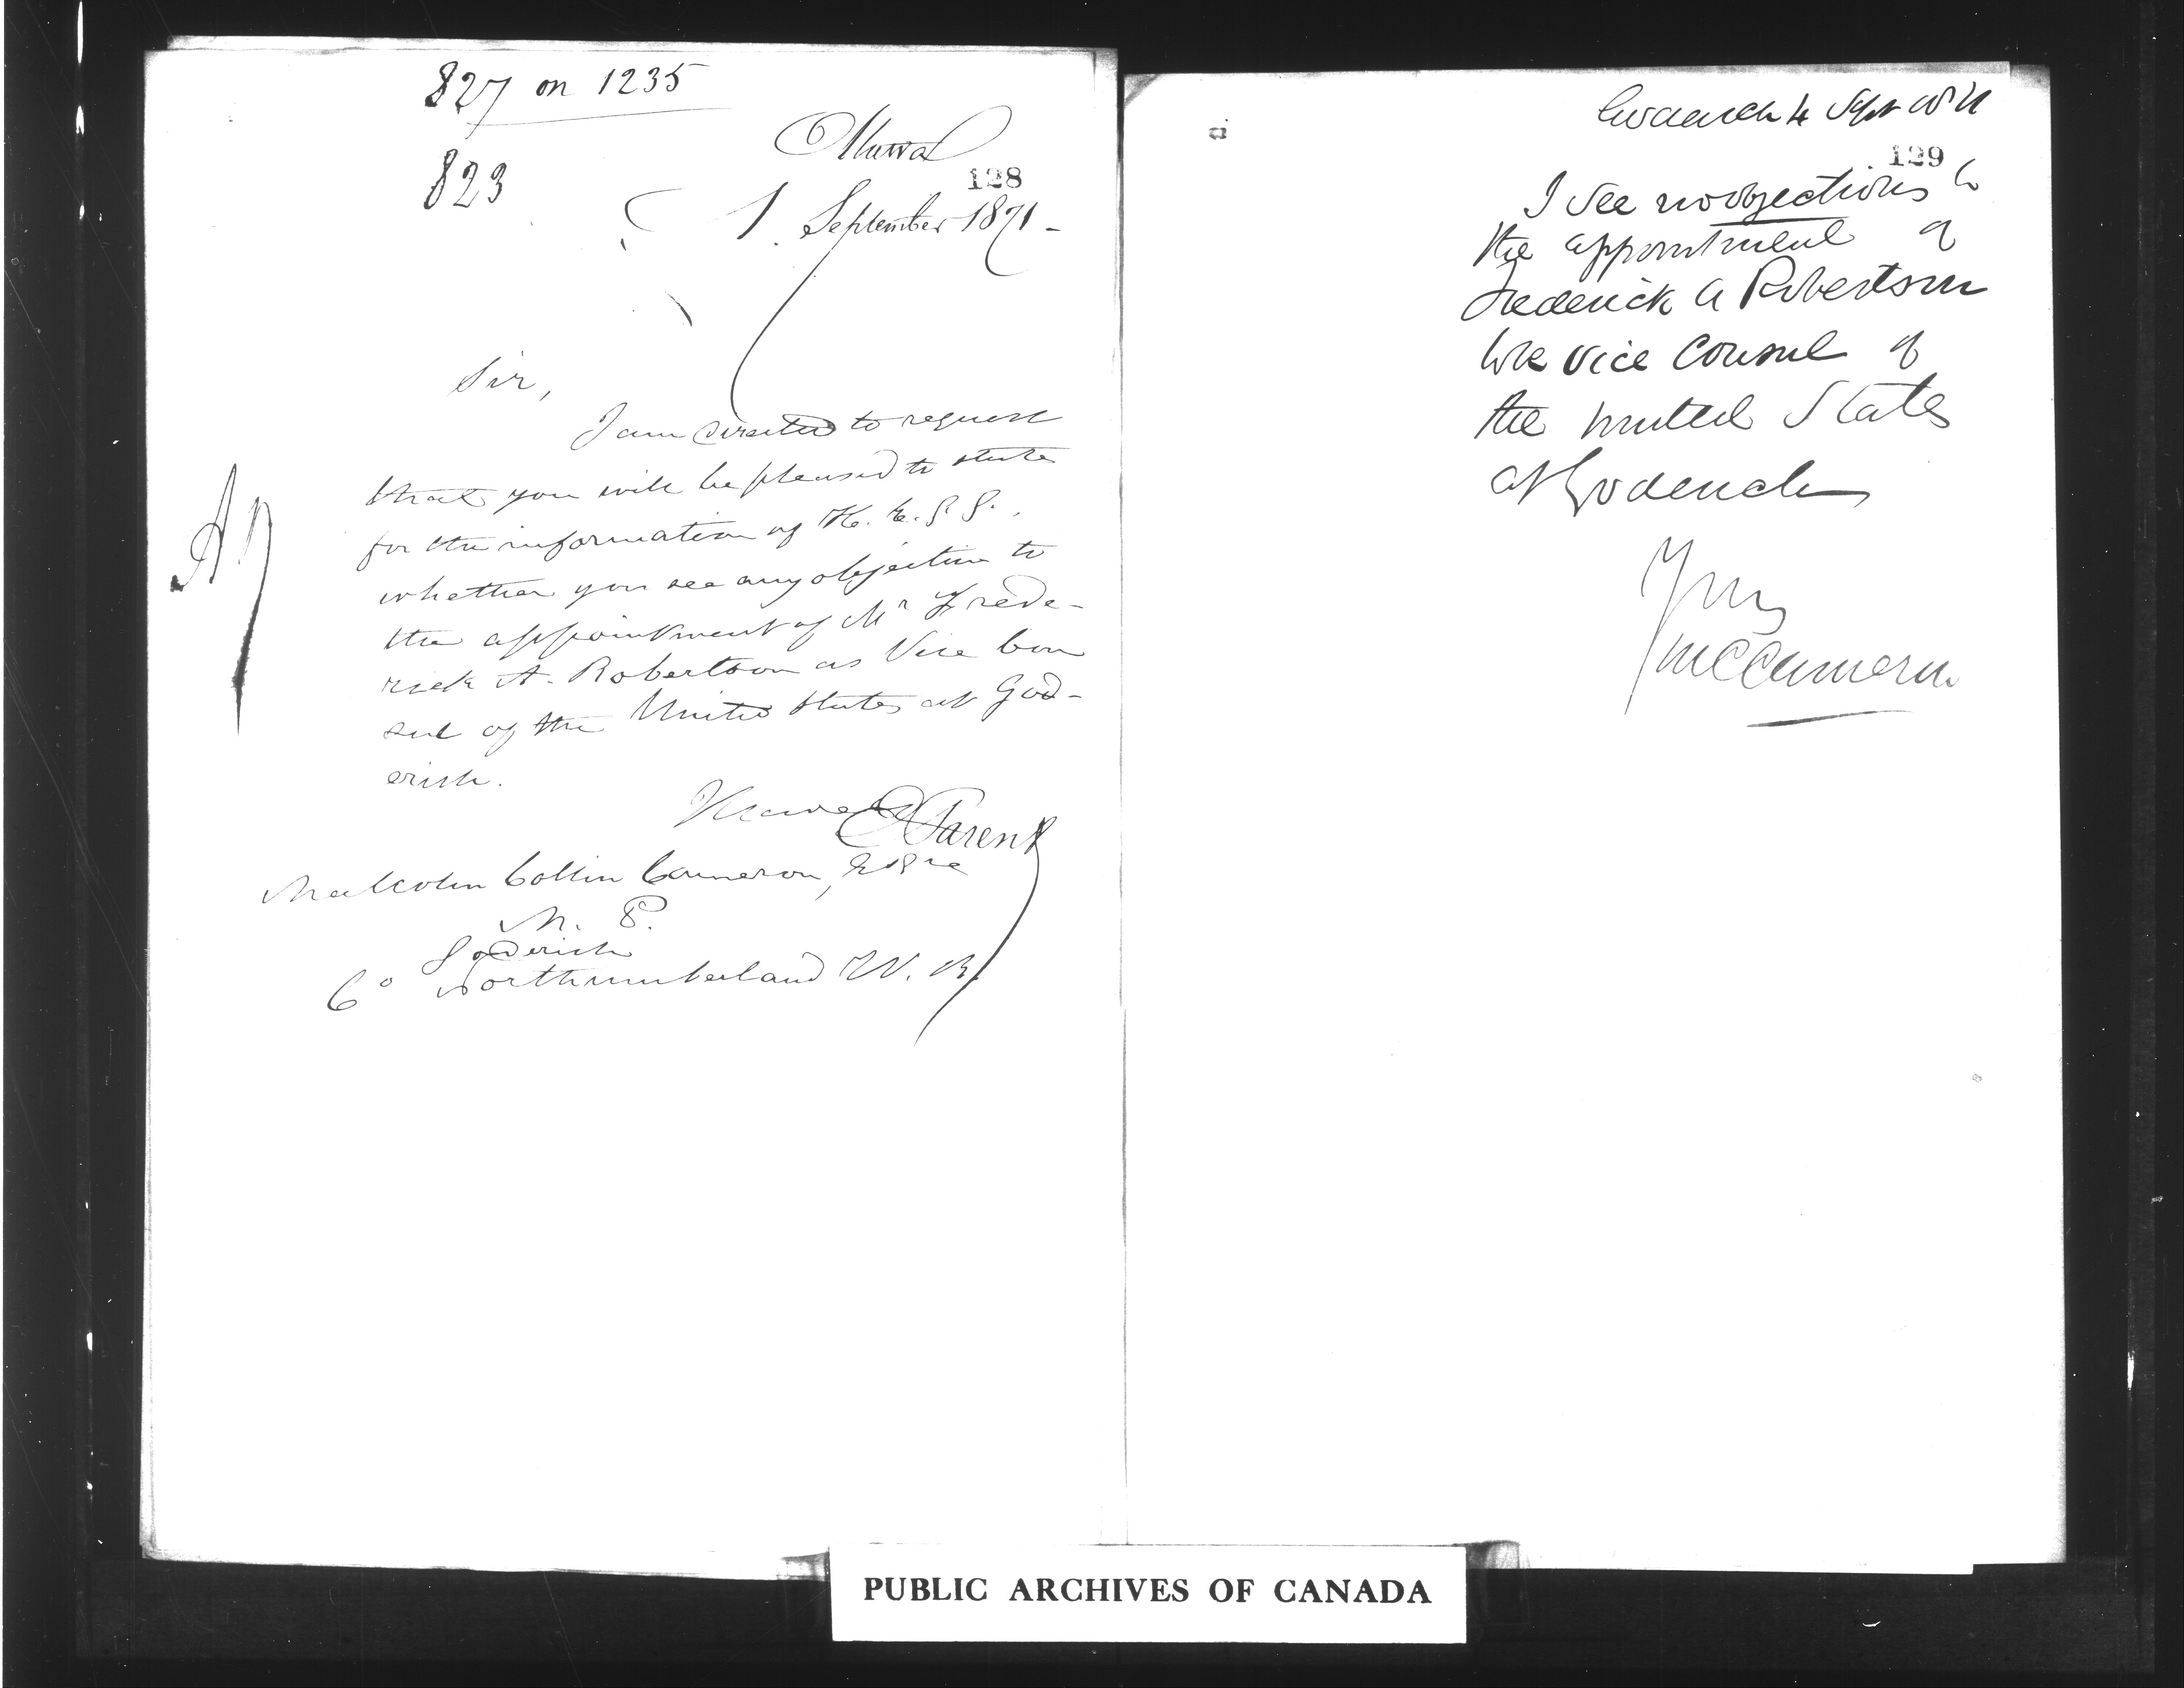 827 on 1235
823
Ottawa
128
1. September 1871-
Sir,
I am directed to request
that you will be pleased to state
for the information of H. E. G. G.
whether you see any objection to
the appointment of Mr Frede-
rick A. Robertson as Vice Con
sul of the United States at God-
erich.
E Parent
Malcolm Collin Cameron, Esqre
M. P.
Goderich
Co Northumberland N. B.
Goderich 4 Sept 1871
129
I see no objections to
the appointment of
Frederick A Robertson
to be vice Consul of
the United States
at Goderich
MCCameron
PUBLIC ARCHIVES OF CANADA